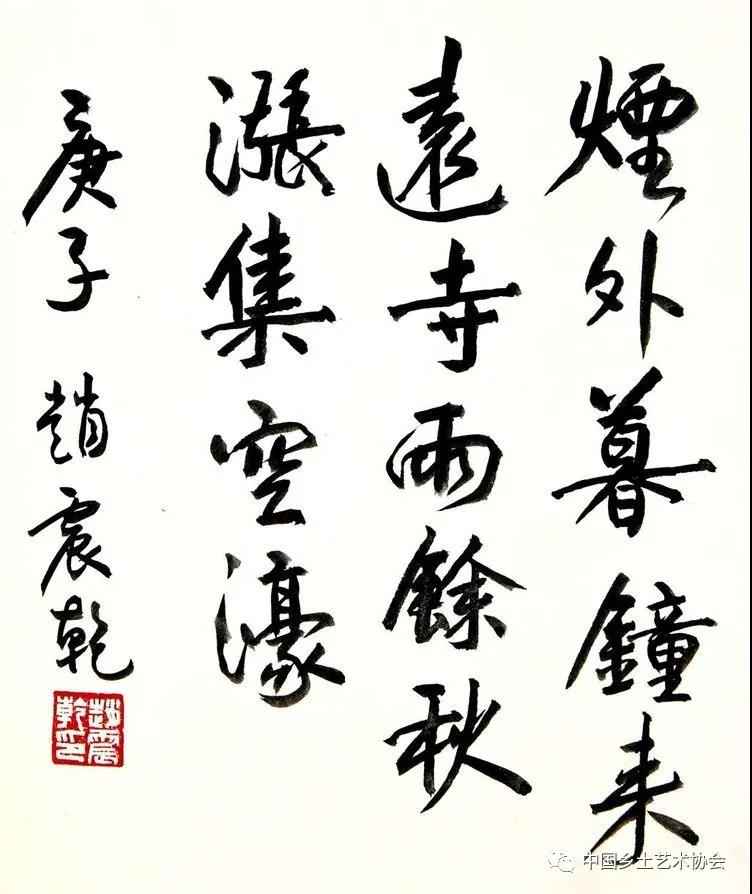 煙外暮鐘来
遠寺雨餘秋
漲集空濠
庚子 趙震乾
趙震乾印
中国乡土艺术协会